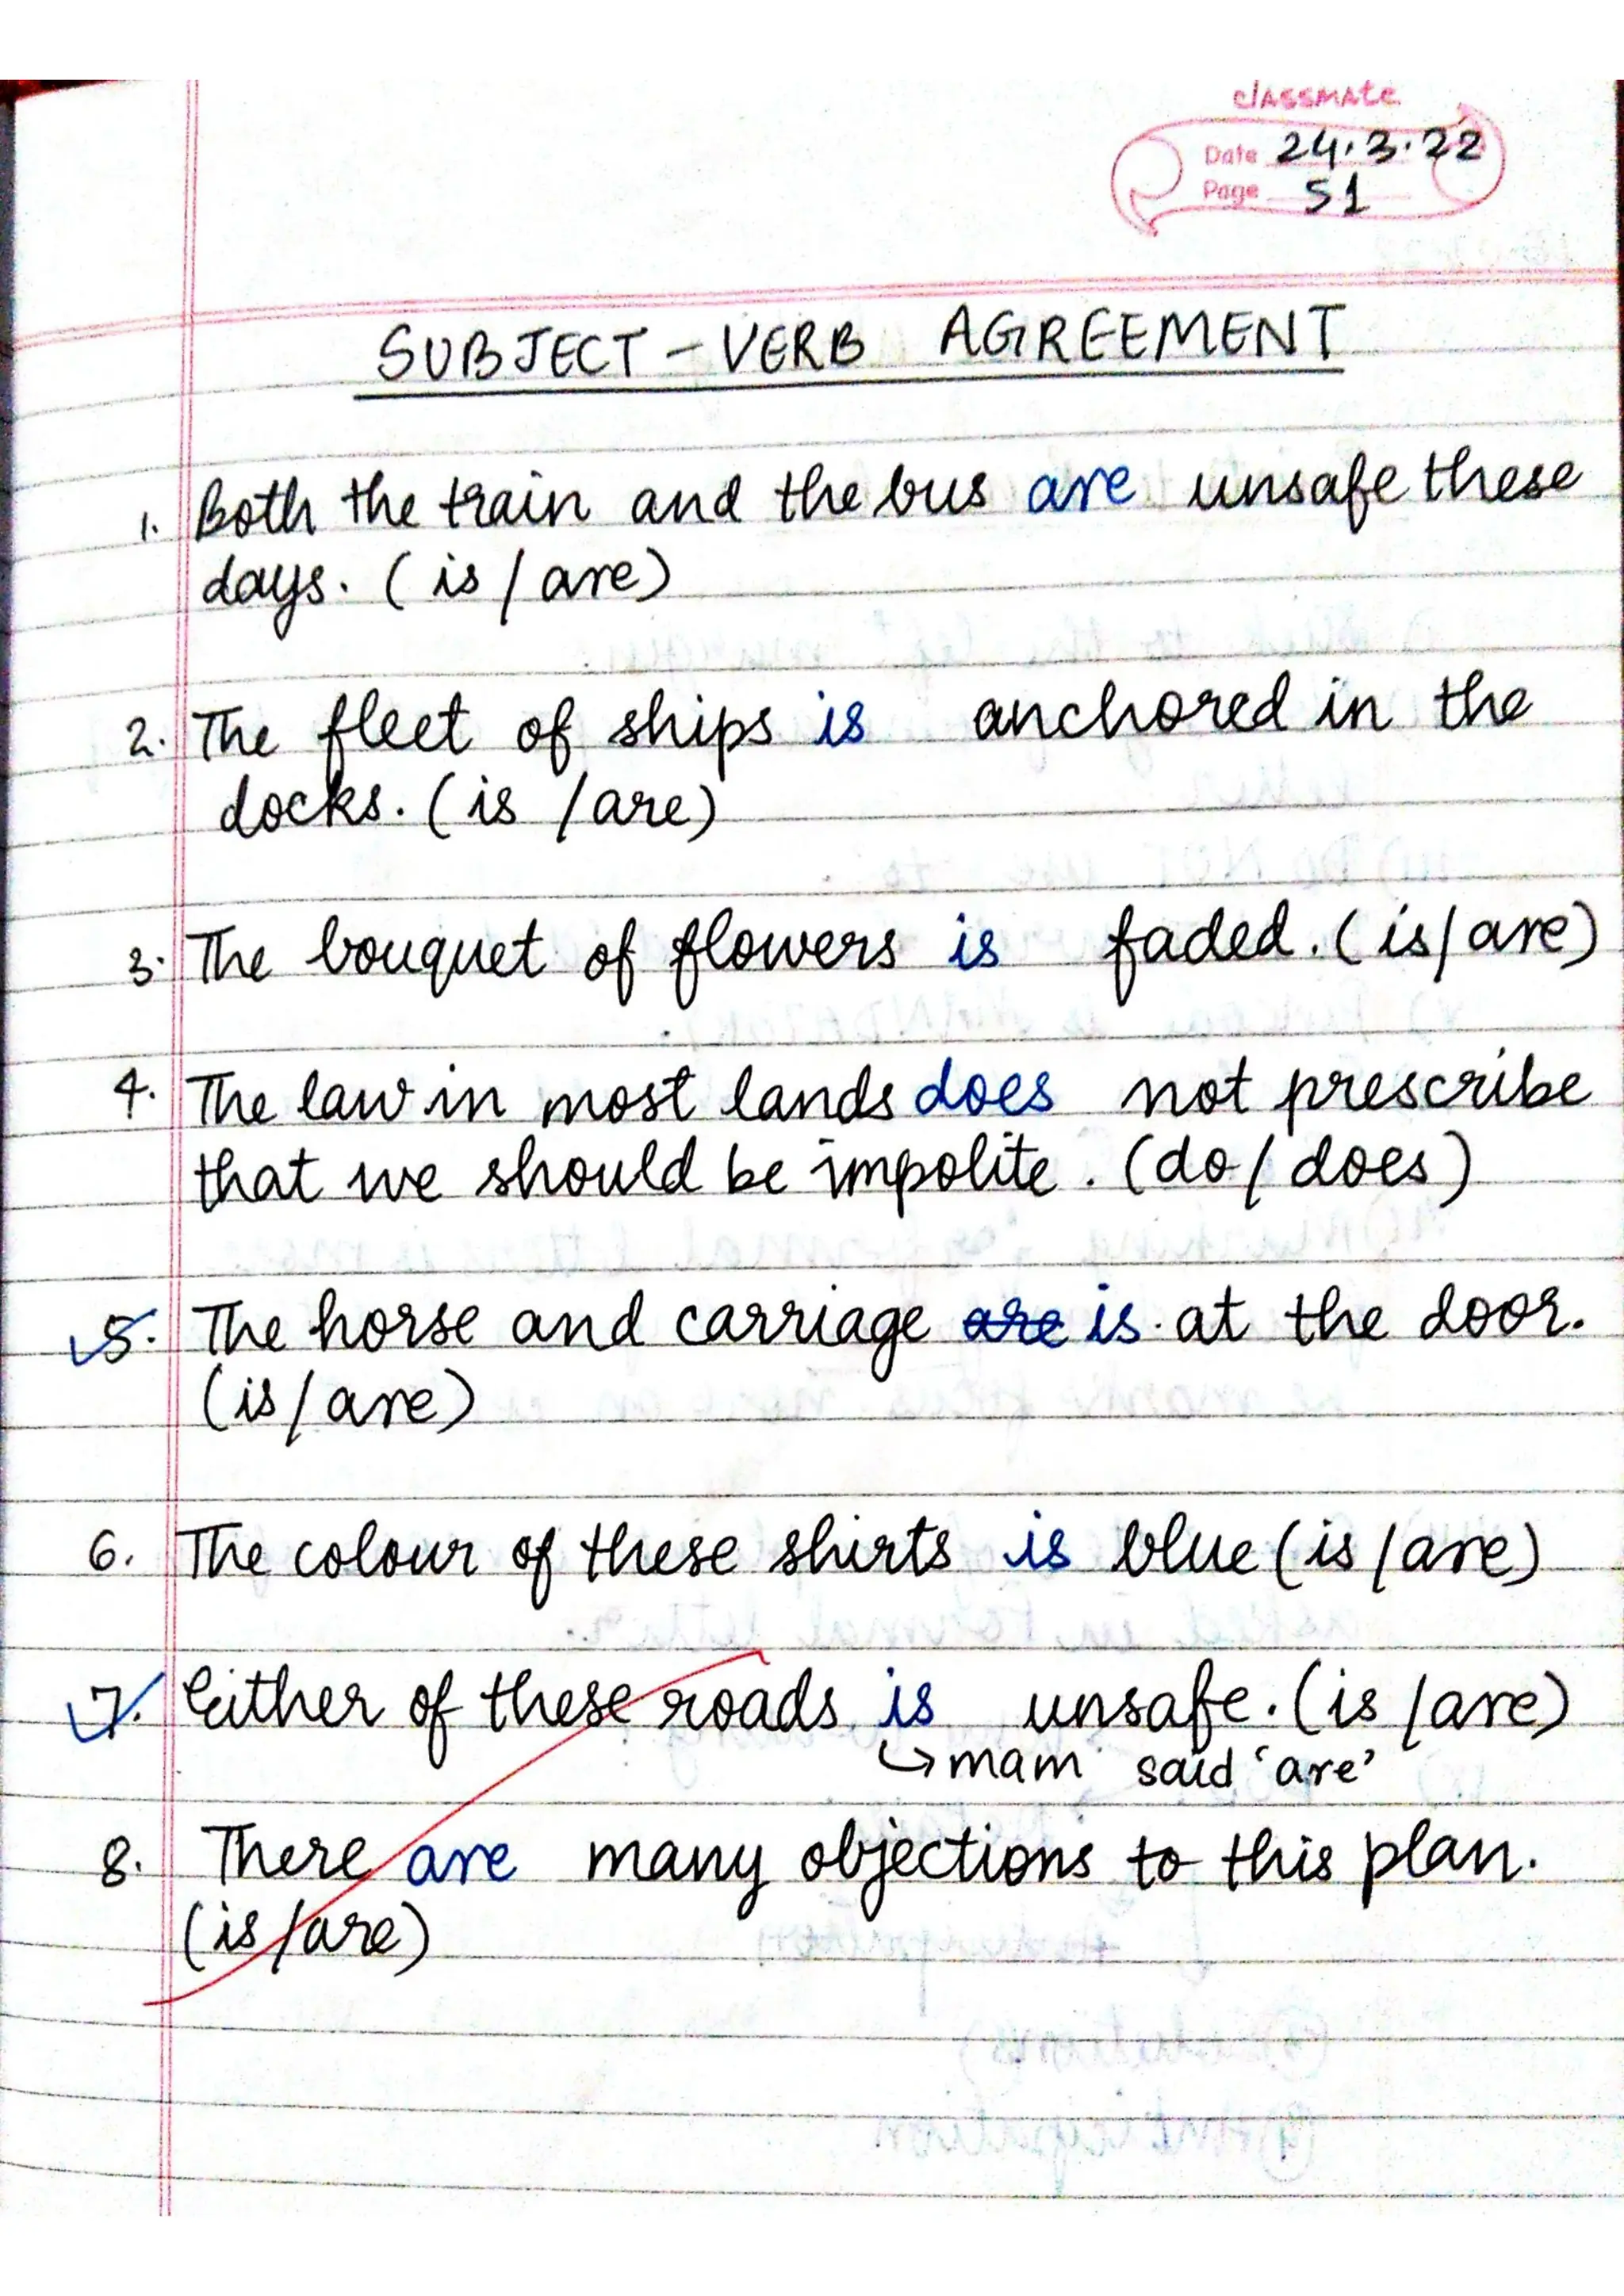 classmate
Date 24.3.22
Page 51
SUBJECT - VERB AGREEMENT
1. Both the train and the bus are unsafe these
days. (is / are)
2. The fleet of ships is anchored in the
docks. (is / are)
3. The bouquet of flowers is faded. (is/are)
4. The law in most lands does not prescribe
that we should be impolite. (do / does)
5. The horse and carriage are is at the door.
(is / are)
6. The colour of these shirts is blue (is / are)
7. Either of these roads is unsafe. (is / are)
↳ mam said 'are'
8. There are many objections to this plan.
(is / are)